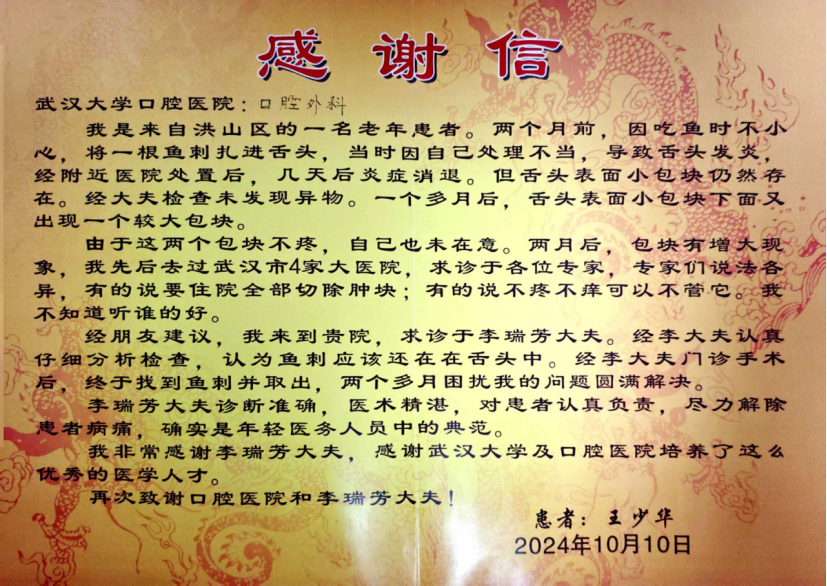 感谢信
武汉大学口腔医院：口腔外科
我是来自洪山区的一名老年患者。两个月前，因吃鱼时不小
心，将一根鱼刺扎进舌头，当时因自己处理不当，导致舌头发炎，
经附近医院处置后，几天后炎症消退。但舌头表面小包块仍然存
在。经大夫检查未发现异物。一个多月后，舌头表面小包块下面又
出现一个较大包块。
由于这两个包块不疼，自己也未在意。两月后，包块有增大现
象，我先后去过武汉市4家大医院，求诊于各位专家，专家们说法各
异，有的说要住院全部切除肿块；有的说不疼不痒可以不管它。我
不知道听谁的好。
经朋友建议，我来到贵院，求诊于李瑞芳大夫。经李大夫认真
仔细分析检查，认为鱼刺应该还在在舌头中。经李大夫门诊手术
后，终于找到鱼刺并取出，两个多月困扰我的问题圆满解决。
李瑞芳大夫诊断准确，医术精湛，对患者认真负责，尽力解除
患者病痛，确实是年轻医务人员中的典范。
我非常感谢李瑞芳大夫，感谢武汉大学及口腔医院培养了这么
优秀的医学人才。
再次致谢口腔医院和李瑞芳大夫！
患者：王少华
2024年10月10日